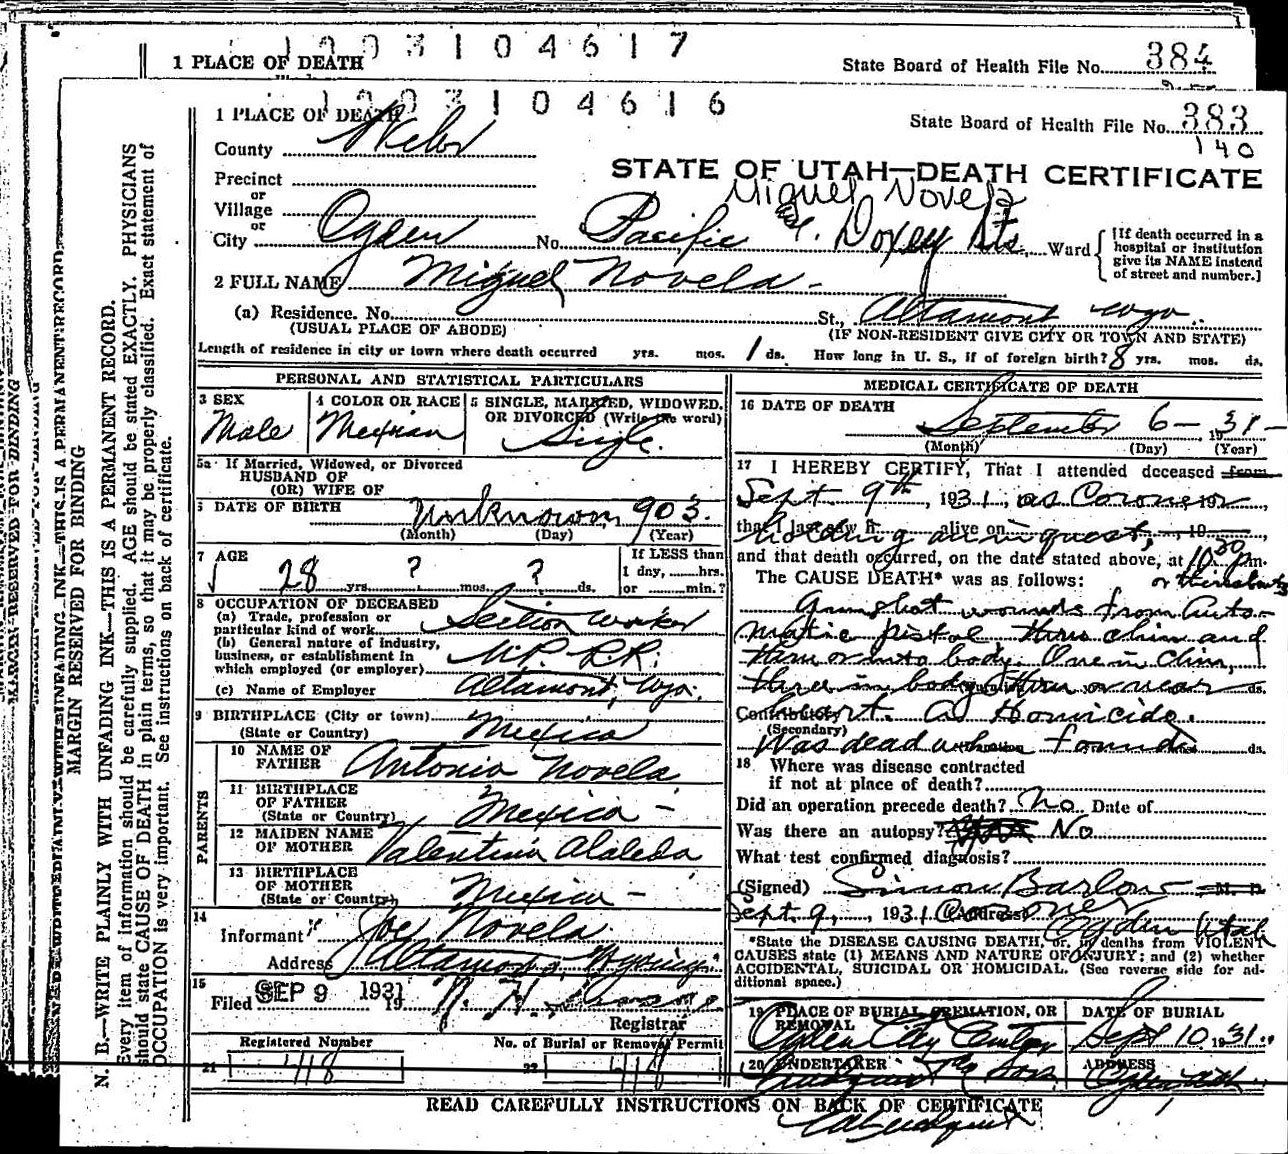 1003104617
1 PLACE OF DEATH
State Board of Health File No. 384
1003104616
1 PLACE OF DEATH
State Board of Health File No. 383
140
County Weber
STATE OF UTAH—DEATH CERTIFICATE
Miguel Novela
Precinct
or
Village
or
City Ogden No. Pacific & Doxey Sts. Ward
[If death occurred in a hospital or institution give its NAME instead of street and number.]
2 FULL NAME Miguel Novela -
(a) Residence. No. St., Altamont Wyo.
(USUAL PLACE OF ABODE) (IF NON-RESIDENT GIVE CITY OR TOWN AND STATE)
Length of residence in city or town where death occurred yrs. mos. 1 ds. How long in U. S., if of foreign birth? 8 yrs. mos. ds.
PERSONAL AND STATISTICAL PARTICULARS
3 SEX
Male
4 COLOR OR RACE
Mexican
5 SINGLE, MARRIED, WIDOWED, OR DIVORCED (Write the word)
Single.
5a If Married, Widowed, or Divorced
HUSBAND OF
(OR) WIFE OF
6 DATE OF BIRTH Unknown 1903.
(Month) (Day) (Year)
7 AGE
28 yrs. ? mos. ? ds.
If LESS than
1 day, hrs.
or min.?
8 OCCUPATION OF DECEASED
(a) Trade, profession or
particular kind of work Section worker
(b) General nature of industry,
business, or establishment in
which employed (or employer) U.P. R.R.
(c) Name of Employer Altamont, Wyo.
9 BIRTHPLACE (City or town)
(State or Country) Mexico
PARENTS
10 NAME OF
FATHER Antonio Novela
11 BIRTHPLACE
OF FATHER
(State or Country) Mexico -
12 MAIDEN NAME
OF MOTHER Valentina
13 BIRTHPLACE
OF MOTHER
(State or Country) Mexico -
14
Informant Joe Novela
Address Altamont, Wyoming
15
Filed SEP 9 1931 19
Registrar
Registered Number
No. of Burial or Removal Permit
21 418
22 418
MEDICAL CERTIFICATE OF DEATH
16 DATE OF DEATH
September 6 - 1931 -
(Month) (Day) (Year)
17 I HEREBY CERTIFY, That I attended deceased from
Sept 9th, 1931, as Coroner 192
that I last saw h alive on 19
holding an inquest,
and that death occurred, on the date stated above, at 10:30 Pm.
The CAUSE DEATH* was as follows: or thereabouts
Gunshot wounds from Auto-
matic pistol thru chin and
thru or into body. One in Chin,
three in body thru or near
Contributory heart. A Homicide.
(Secondary)
Was dead when found ds.
18 Where was disease contracted
if not at place of death?
Did an operation precede death? No Date of
Was there an autopsy? No
What test confirmed diagnosis?
(Signed) Simon Barlow M. D.
Sept. 9, 1931 (Address) Coroner Ogden Utah
*State the DISEASE CAUSING DEATH, or, in deaths from VIOLENT
CAUSES state (1) MEANS AND NATURE OF INJURY; and (2) whether
ACCIDENTAL, SUICIDAL OR HOMICIDAL. (See reverse side for ad-
ditional space.)
19 PLACE OF BURIAL, CREMATION, OR
REMOVAL
Ogden City Cemetery
DATE OF BURIAL
Sept 10 1931
20 UNDERTAKER
Lindquist & Sons
ADDRESS
Ogden, Utah
READ CAREFULLY INSTRUCTIONS ON BACK OF CERTIFICATE
MARGIN RESERVED FOR BINDING
N. B.—WRITE PLAINLY WITH UNFADING INK—THIS IS A PERMANENT RECORD.
Every item of Information should be carefully supplied. AGE should be stated EXACTLY. PHYSICIANS
should state CAUSE OF DEATH in plain terms, so that it may be properly classified. Exact statement of
OCCUPATION is very important. See instructions on back of certificate.